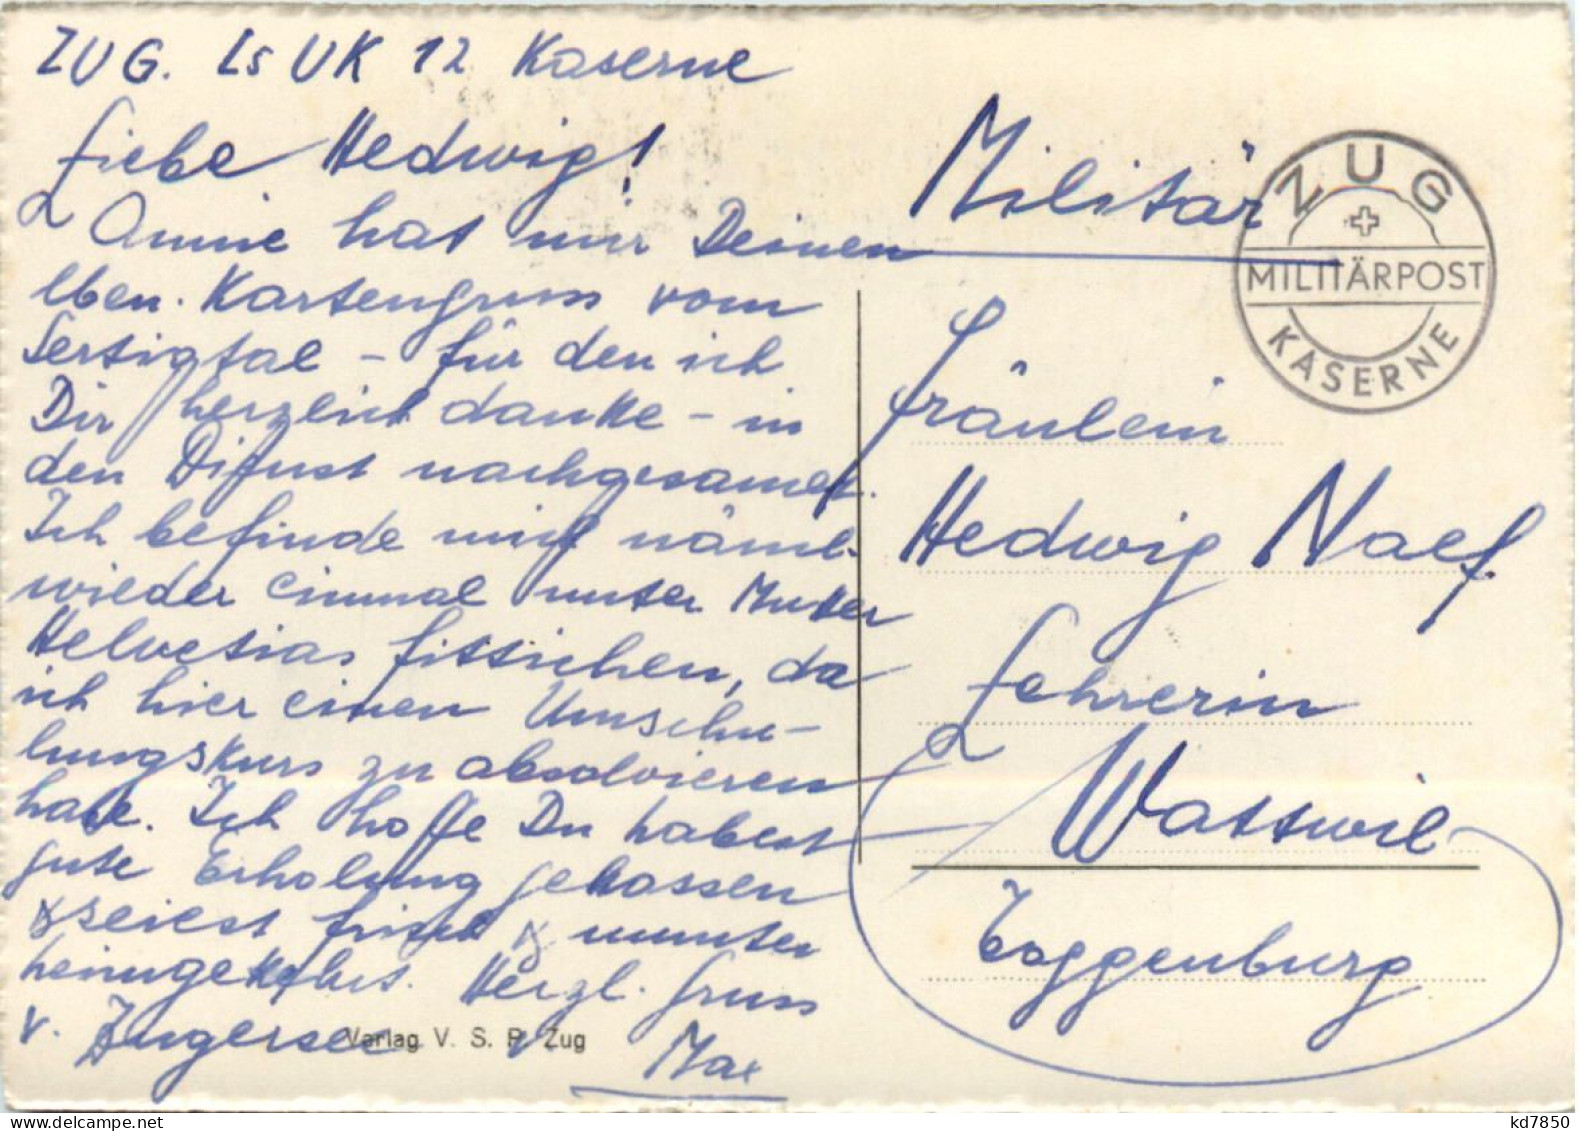 ZUG. Ls UK 12 Kaserne
Liebe Hedwig!
Annie hat mir Deinen
lben. Kartengruss vom
Sertigtal - für den ich
Dir herzlich danke - in
den Dienst nachgesandt.
Ich befinde mich näml.
wieder einmal unter Mutter
Helvetias Fittichen, da
ich hier einen Umschu-
lungskurs zu absolvieren
habe. Ich hoffe Du habest
gute Erholung genossen
& seiest frisch & munter
heimgekehrt. Herzl. Gruss
v. Zugersee v. Max
Verlag V. S. P. Zug
Militär
ZUG
MILITÄRPOST
KASERNE
Fräulein
Hedwig Naef
Lehrerin
Wattwil
Toggenburg
kd7850